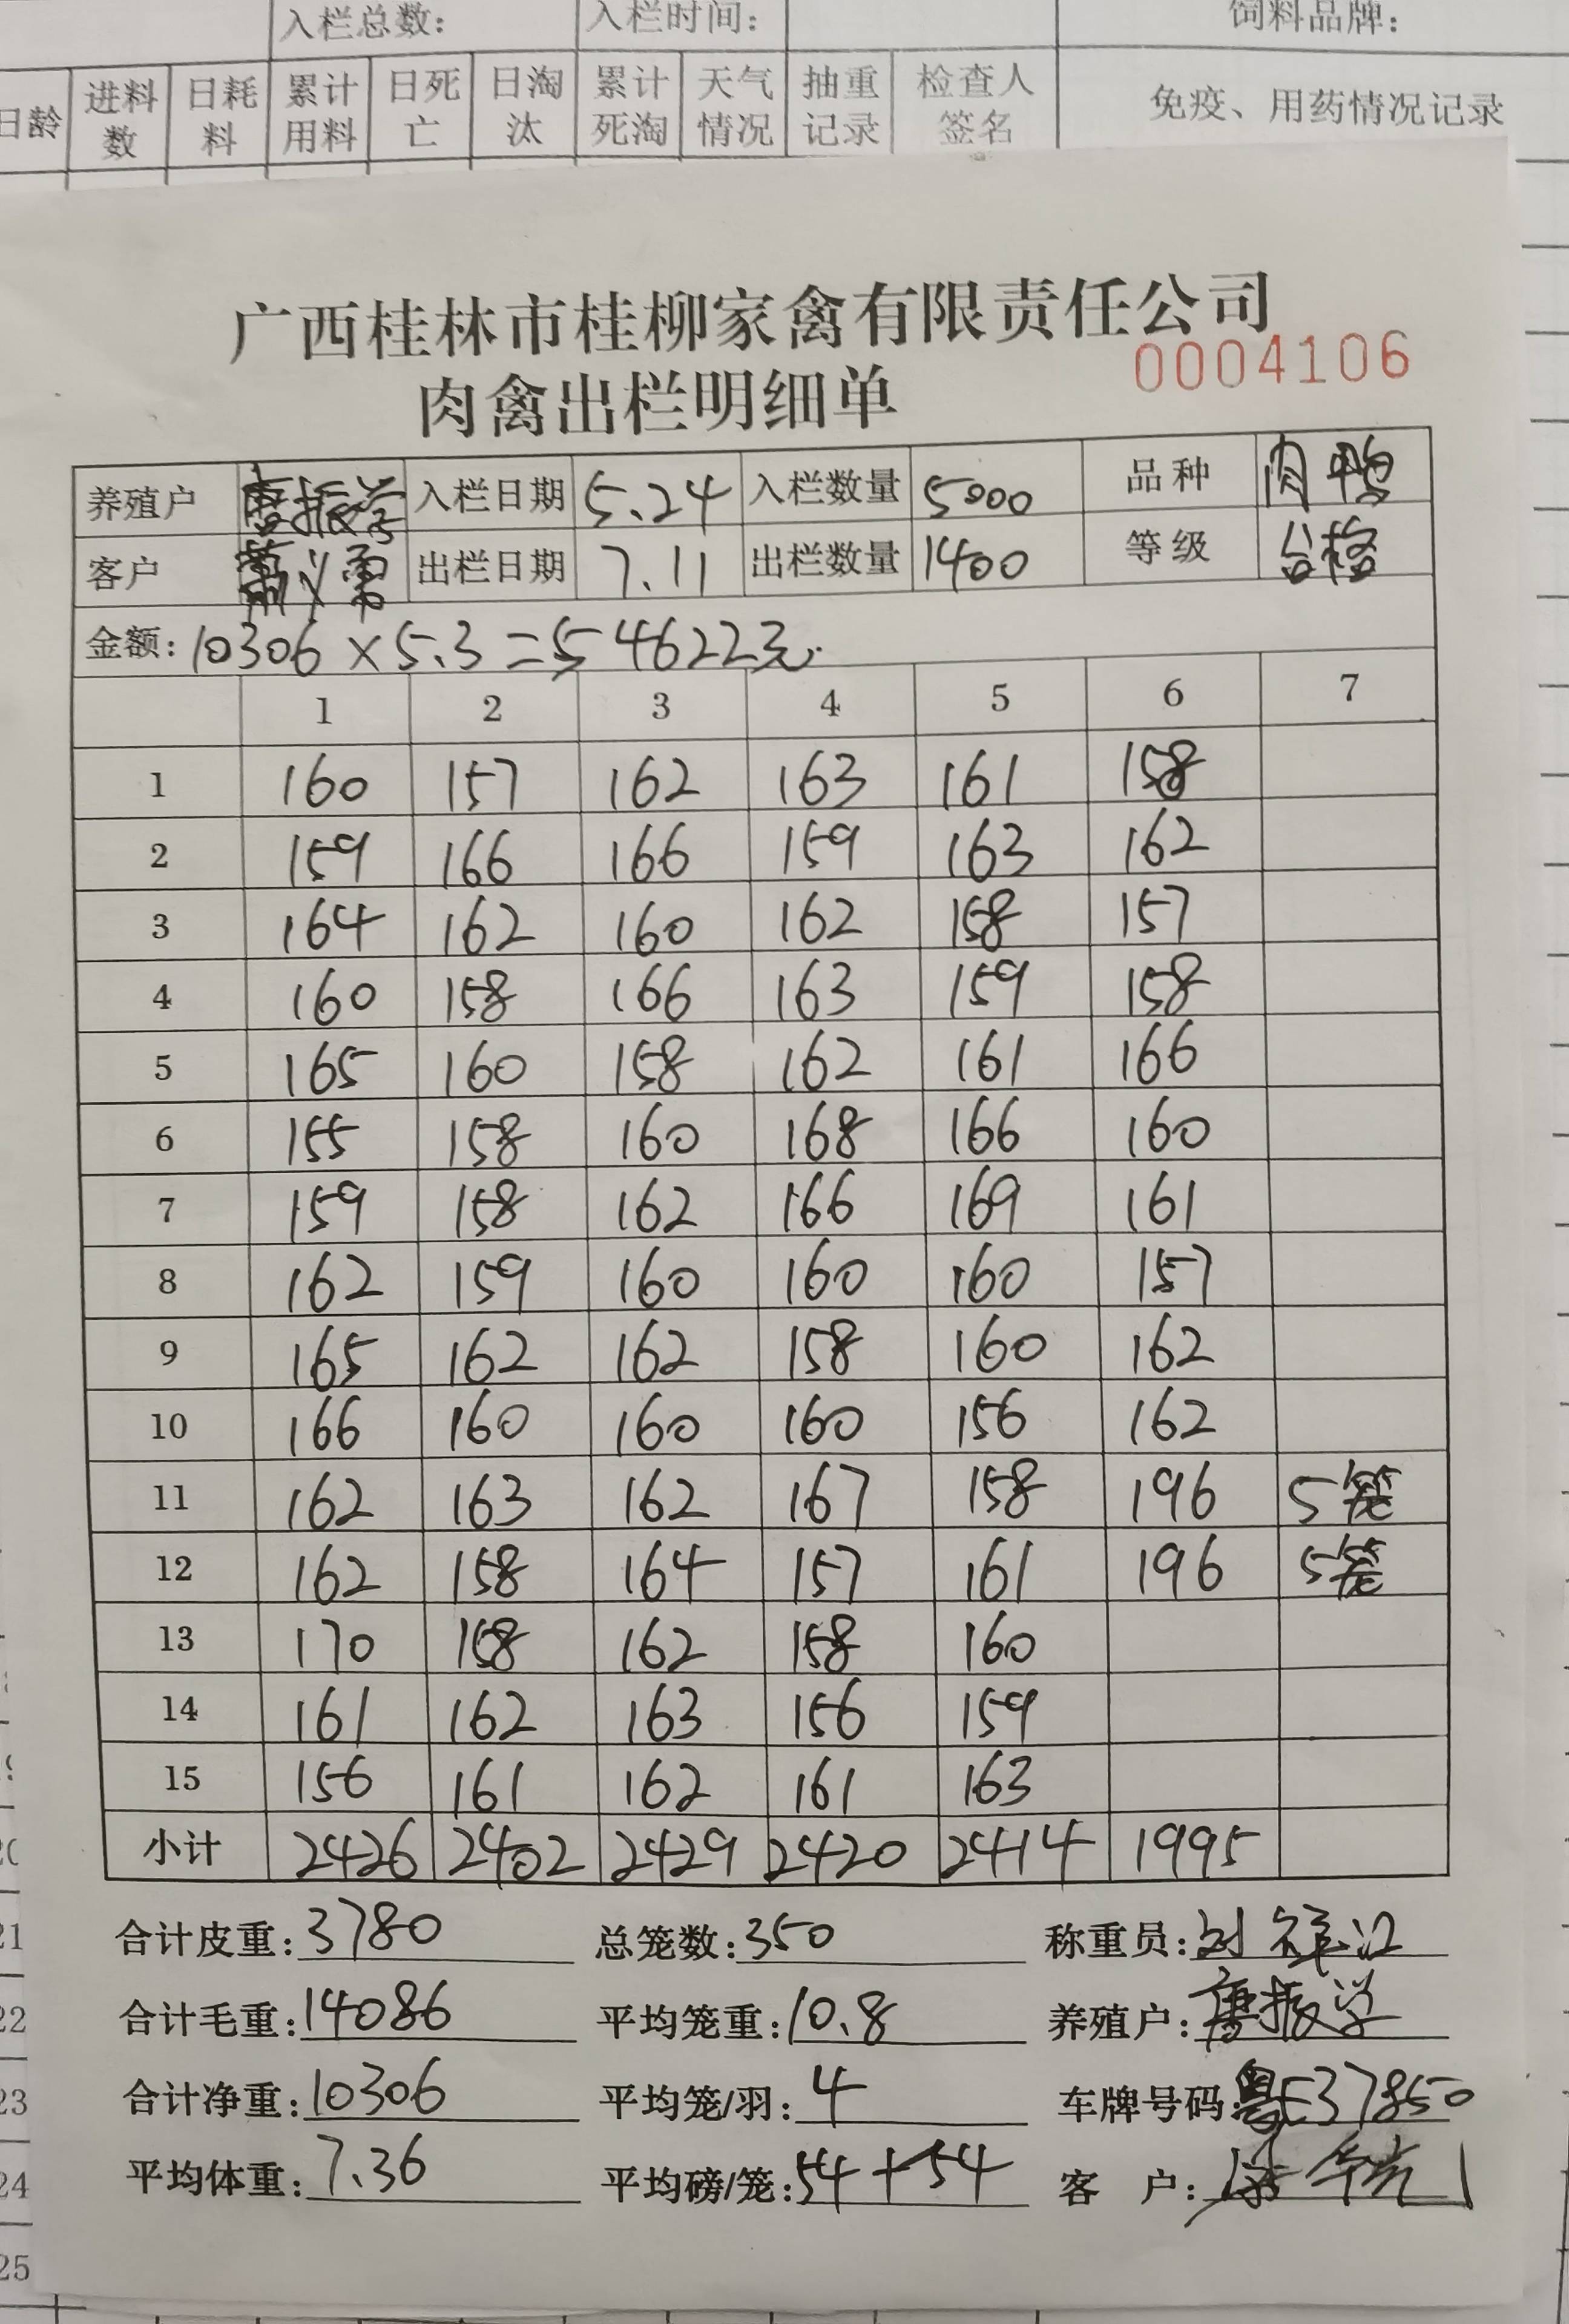 入栏总数： 入栏时间： 饲料品牌：
日龄 进料数 日耗料 累计用料 日死亡 日淘汰 累计死淘 天气情况 抽重记录 检查人签名 免疫、用药情况记录
广西桂林市桂柳家禽有限责任公司
0004106
肉禽出栏明细单
养殖户 唐振学 入栏日期 5.24 入栏数量 5000 品种 肉鸭
客户 出栏日期 7.11 出栏数量 1400 等级 合格
金额：10306×5.3=54622元.
1 2 3 4 5 6 7
1 160 157 162 163 161 158
2 159 166 166 159 163 162
3 164 162 160 162 158 157
4 160 158 166 163 159 158
5 165 160 158 162 161 166
6 155 158 160 168 166 160
7 159 158 162 166 169 161
8 162 159 160 160 160 157
9 165 162 162 158 160 162
10 166 160 160 160 156 162
11 162 163 162 167 158 196 5笼
12 162 158 164 157 161 196 5笼
13 170 158 162 158 160
14 161 162 163 156 159
15 156 161 162 161 163
小计 2426 2402 2429 2420 2414 1995
合计皮重：3780 总笼数：350 称重员：刘祥江
合计毛重：14086 平均笼重：10.8 养殖户：唐振学
合计净重：10306 平均笼/羽：4 车牌号码：粤E37850
平均体重：7.36 平均磅/笼：54+54 客 户：
21
22
23
24
25